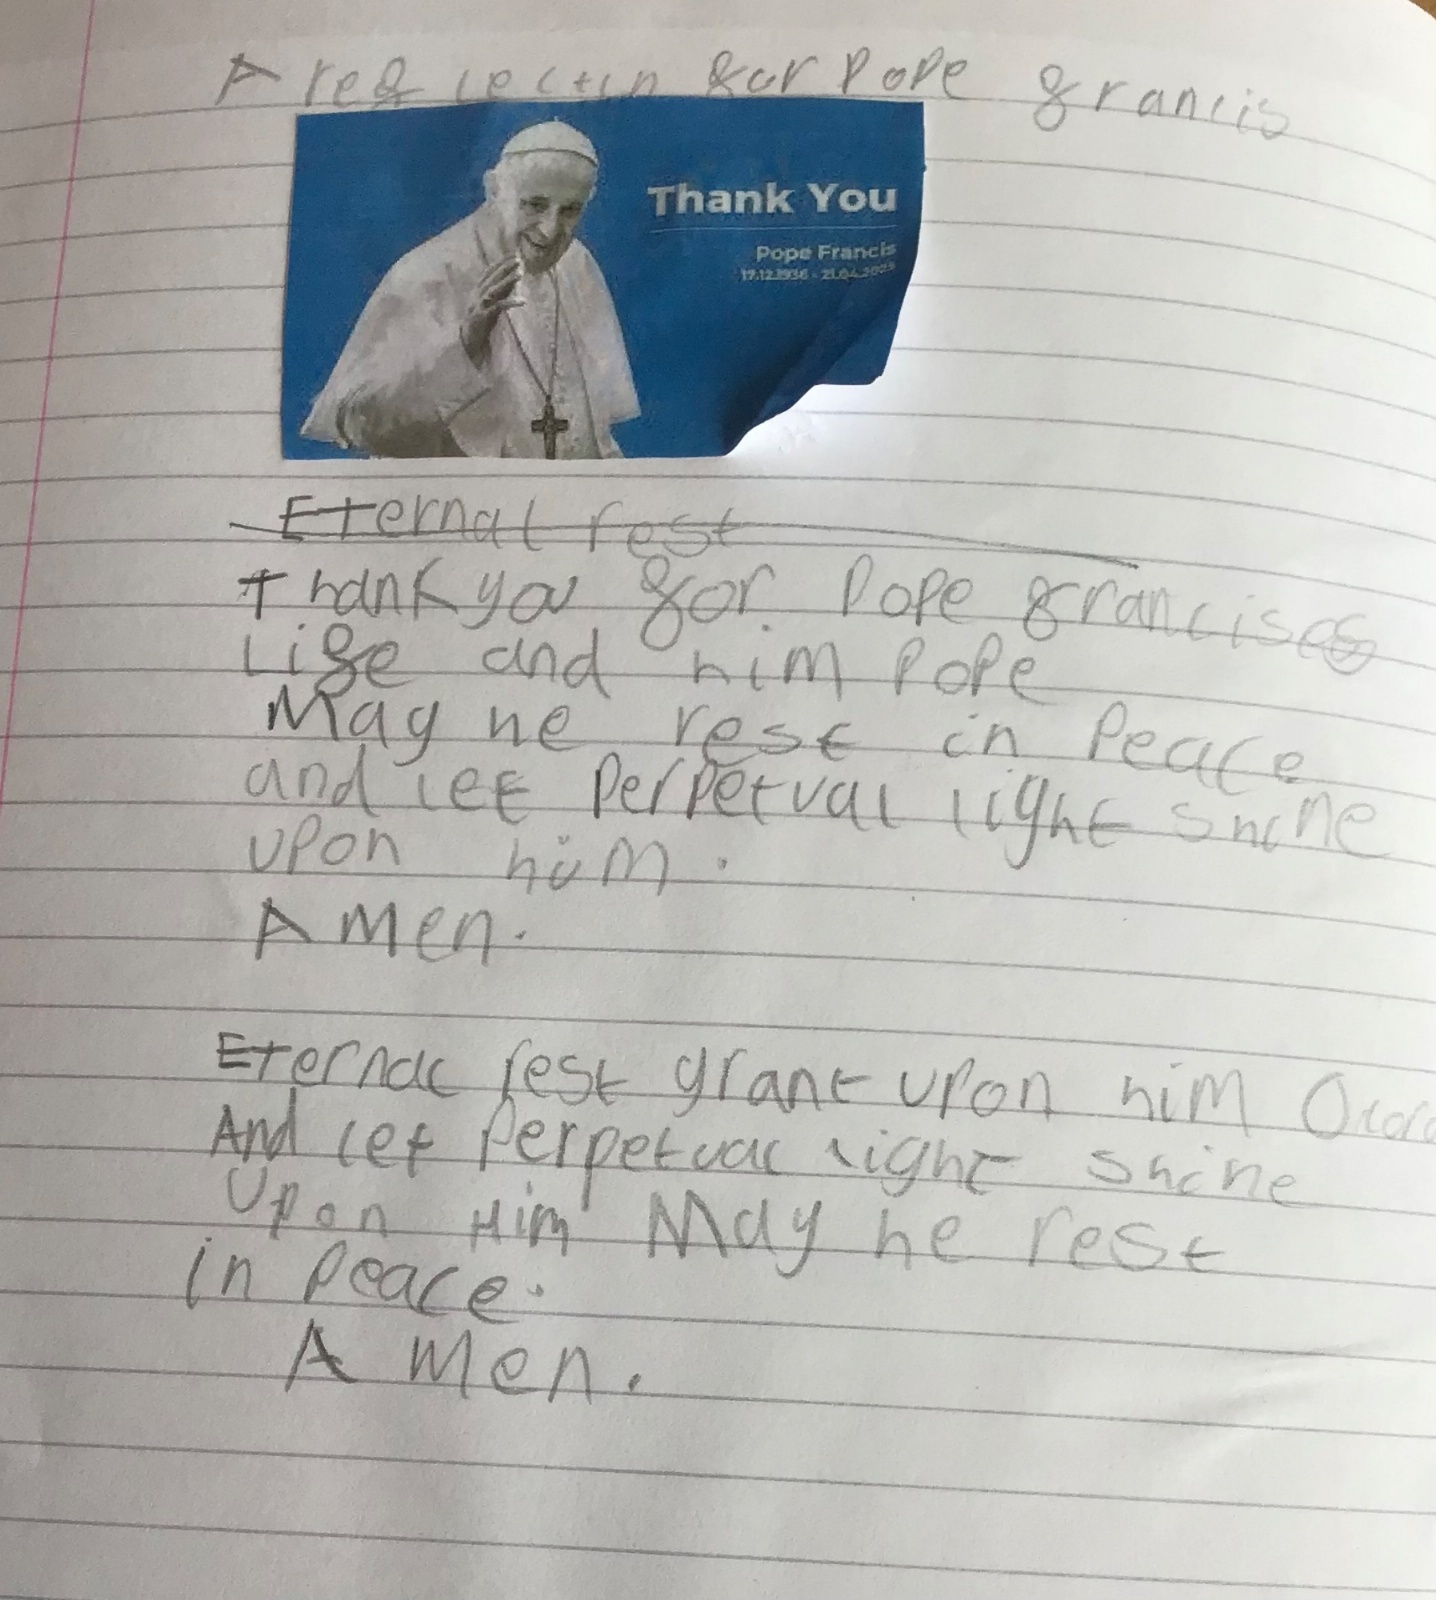 A reflectin for Pope francis
Thank You
Pope Francis
17.12.1936 - 21.04.2025
Eternal rest
Thank you for Pope francises
Life and him Pope
May he rest in Peace
and let Perpetual light shine
upon him.
Amen.
Eternal rest grant upon him O lord
And let Perpetual light shine
Upon Him May he rest
in Peace.
Amen.